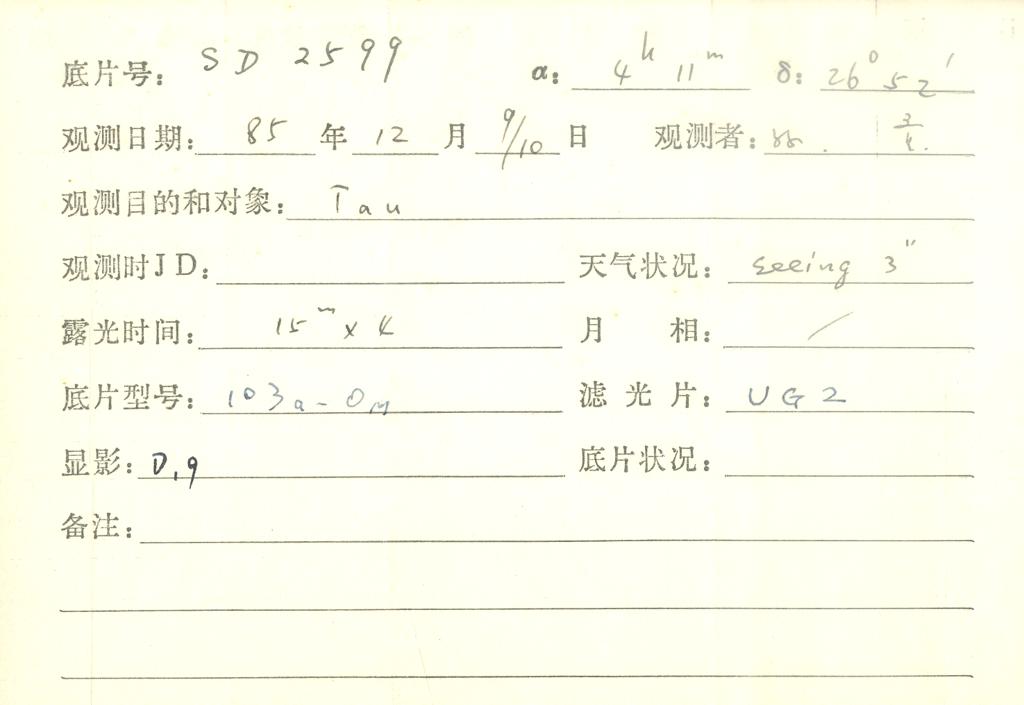 底片号: SD 2599 α: 4h 11m δ: 26° 52′
观测日期: 85 年 12 月 9/10 日 观测者:
观测目的和对象: Tau
观测时JD: 天气状况: Seeing 3″
露光时间: 15m x 4 月 相: /
底片型号: 103a-O 滤光片: UG2
显影: D.9 底片状况:
备注: